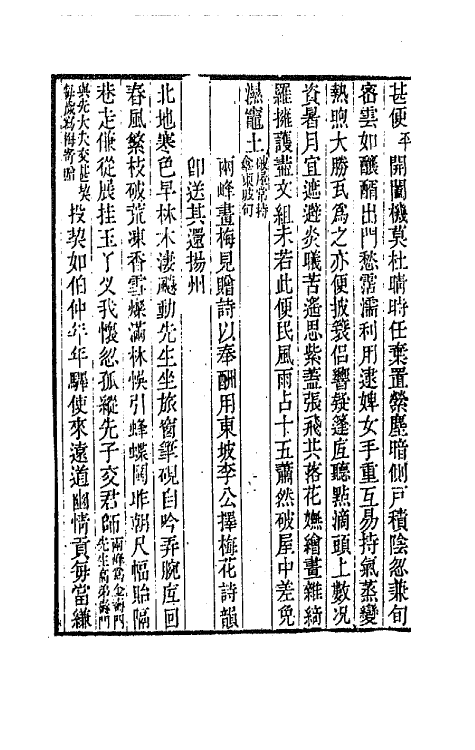 甚便平開闔機莫杜嚆時任棄置縈塵暗側戸積陰忽兼旬
密雲如釀酷出門愁常濡利用逮婢女手重互易持氣蒸變
熱煦大勝瓦為之亦便披簑侶響疑篷底聽點滴頭上數況
資暑月宜遮避炎曦苦遙思紫蓋張飛共落花嫵繪畫雜綺
羅擁護盡文組未若此便民風雨占十五蕭然破屋中差免
濕竈土
兩峰畫梅見贈詩以奉酬用東坡李公擇梅花詩韻
卽送其還揚州
北地寒色早林木淒颸動先生坐旅窗筆硯自吟弄腕底回
春風繁枝破荒凍香雪燦滿林悞引蜂蝶鬨咋朔尺幅貽隔
巷走傔從展挂玉丫叉我懷忽孤縱先子交君師兩峰爲金壽門先生高弟壽門
與先大夫交甚契每歲寫梅寄贈投契如伯仲年年驛使來遠道幽情貢每當縑